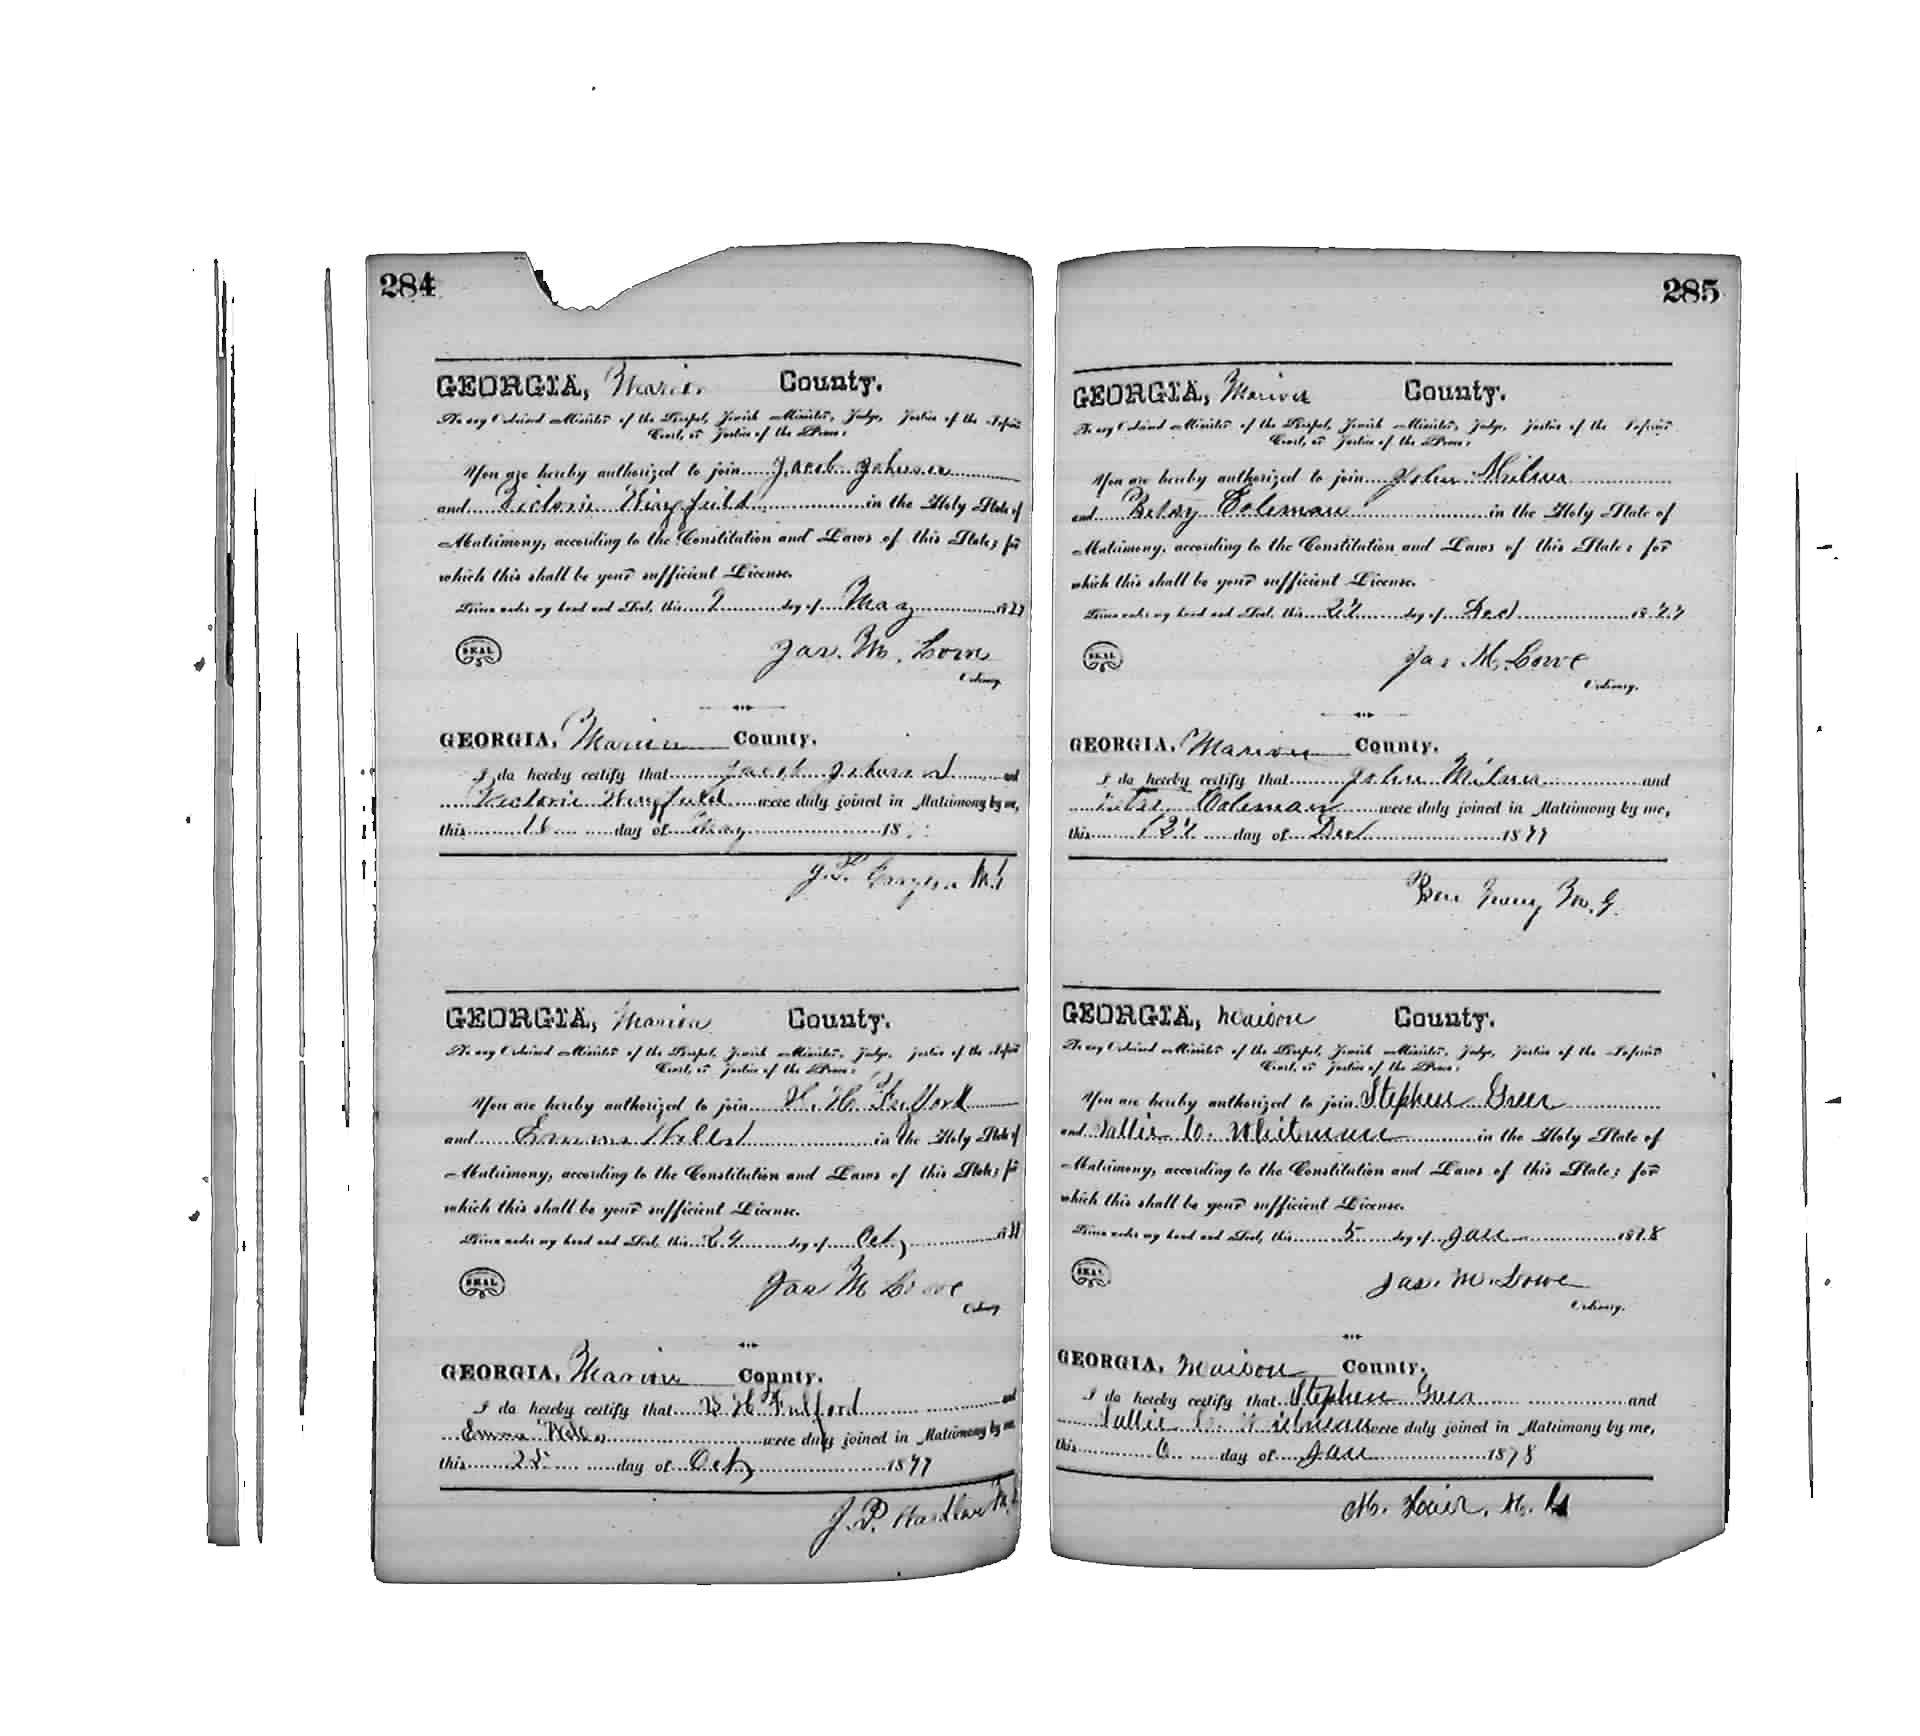 284
GEORGIA, Marion County.
To any Ordained Minister of the Gospel, Jewish Minister, Judge, Justice of the Inferior
Court, or Justice of the Peace:
You are hereby authorized to join Jacob Johnson
and Victoria Wingfield in the Holy State of
Matrimony, according to the Constitution and Laws of this State; for
which this shall be your sufficient License.
Given under my hand and Seal, this day of May 1877
SEAL
Jas. M. Lowe
Ordinary.
GEORGIA, Marion County.
I do hereby certify that Jacob Johnson and
Victoria Wingfield were duly joined in Matrimony by me,
this 16 day of May 18
J.
GEORGIA, Marion County.
To any Ordained Minister of the Gospel, Jewish Minister, Judge, Justice of the Inferior
Court, or Justice of the Peace:
You are hereby authorized to join H. Fulford
and Emma Wells in the Holy State of
Matrimony, according to the Constitution and Laws of this State; for
which this shall be your sufficient License.
Given under my hand and Seal, this 24 day of Oct 18
SEAL
Jas M Lowe
Ordinary
GEORGIA, Marion County.
I do hereby certify that H Fulford and
Emma Wells were duly joined in Matrimony by me
this 25 day of Oct 1877
J. P.
285
GEORGIA, Marion County.
To any Ordained Minister of the Gospel, Jewish Minister, Judge, Justice of the Inferior
Court, or Justice of the Peace:
You are hereby authorized to join John Milner
and Betsy Coleman in the Holy State of
Matrimony, according to the Constitution and Laws of this State; for
which this shall be your sufficient License.
Given under my hand and Seal, this 27 day of Dec 1877
SEAL
Jas. M. Lowe
Ordinary.
GEORGIA, Marion County.
I do hereby certify that John Milner and
Coleman were duly joined in Matrimony by me,
this day of Dec 1877
Ben M. G.
GEORGIA, Marion County.
To any Ordained Minister of the Gospel, Jewish Minister, Judge, Justice of the Inferior
Court, or Justice of the Peace:
You are hereby authorized to join Stephen Greer
and Sallie C. Whitman in the Holy State of
Matrimony, according to the Constitution and Laws of this State; for
which this shall be your sufficient License.
Given under my hand and Seal, this 5 day of Jan 1878
SEAL
Jas. M. Lowe
Ordinary.
GEORGIA, Marion County.
I do hereby certify that Stephen Greer and
Sallie C. Whitman were duly joined in Matrimony by me,
this 6 day of Jan 1878
M. M. G